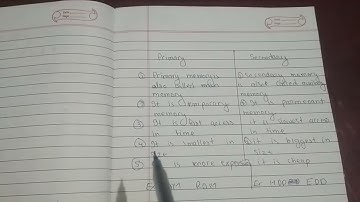 Primary Secondary
① Primary memory is ① Secondary memory
also called main is also called auxiliary
memory memory
② It is temporary ② It is permanent
memory memory
③ It is fast access ③ It is slowest access
in time in time
④ It is smallest in ④ It is biggest in
size size
⑤ is more expensive it is cheap
ROM Ex HDD